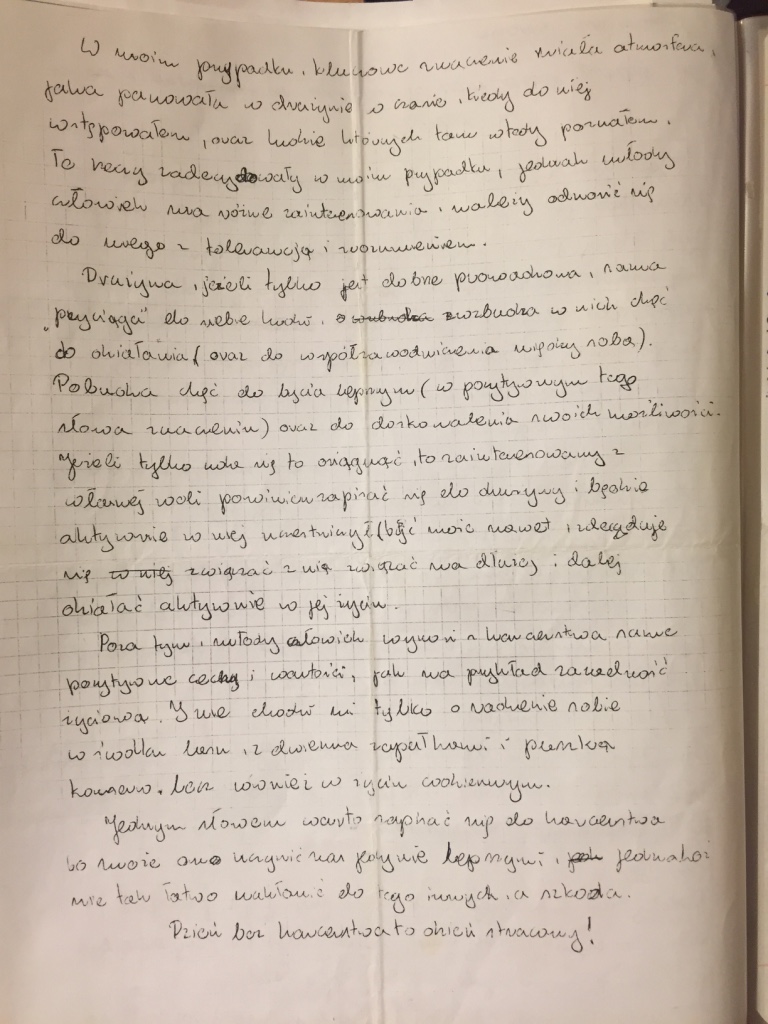 W moim przypadku, kluczowe znaczenie miała atmosfera,
jaka panowała w drużynie w czasie, kiedy do niej
wstępowałem, oraz ludzie których tam wtedy poznałem.
Te rzeczy zadecydowały w moim przypadku, jednak młody
człowiek ma różne zainteresowania, należy odnosić się
do niego z tolerancją i zrozumieniem.
Drużyna, jeżeli tylko jest dobrze prowadzona, sama
"przyciąga" do siebie ludzi, rozbudza w nich chęć
do działania (oraz do współzawodniczenia między sobą).
Pobudza chęć do bycia lepszym (w pozytywnym tego
słowa znaczeniu) oraz do doskonalenia swoich możliwości.
Jeżeli tylko uda się to osiągnąć, to zainteresowany z
własnej woli powinien zapisać się do drużyny i będzie
aktywnie w niej uczestniczył (być może nawet, zdecyduje
się związać z nią związać na dłużej i dalej
działać aktywnie w jej życiu.
Poza tym, młody człowiek wynosi z harcerstwa same
pozytywne cechy i wartości, jak na przykład zaradność
życiową. I nie chodzi mi tylko o radzenie sobie
w środku lasu, z dwiema zapałkami i puszką
konserw, lecz również w życiu codziennym.
Jednym słowem warto zapisać się do harcerstwa
bo może ono uczynić nas jedynie lepszymi, jednakże
nie tak łatwo nakłonić do tego innych, a szkoda.
Dzień bez harcerstwa to dzień stracony!